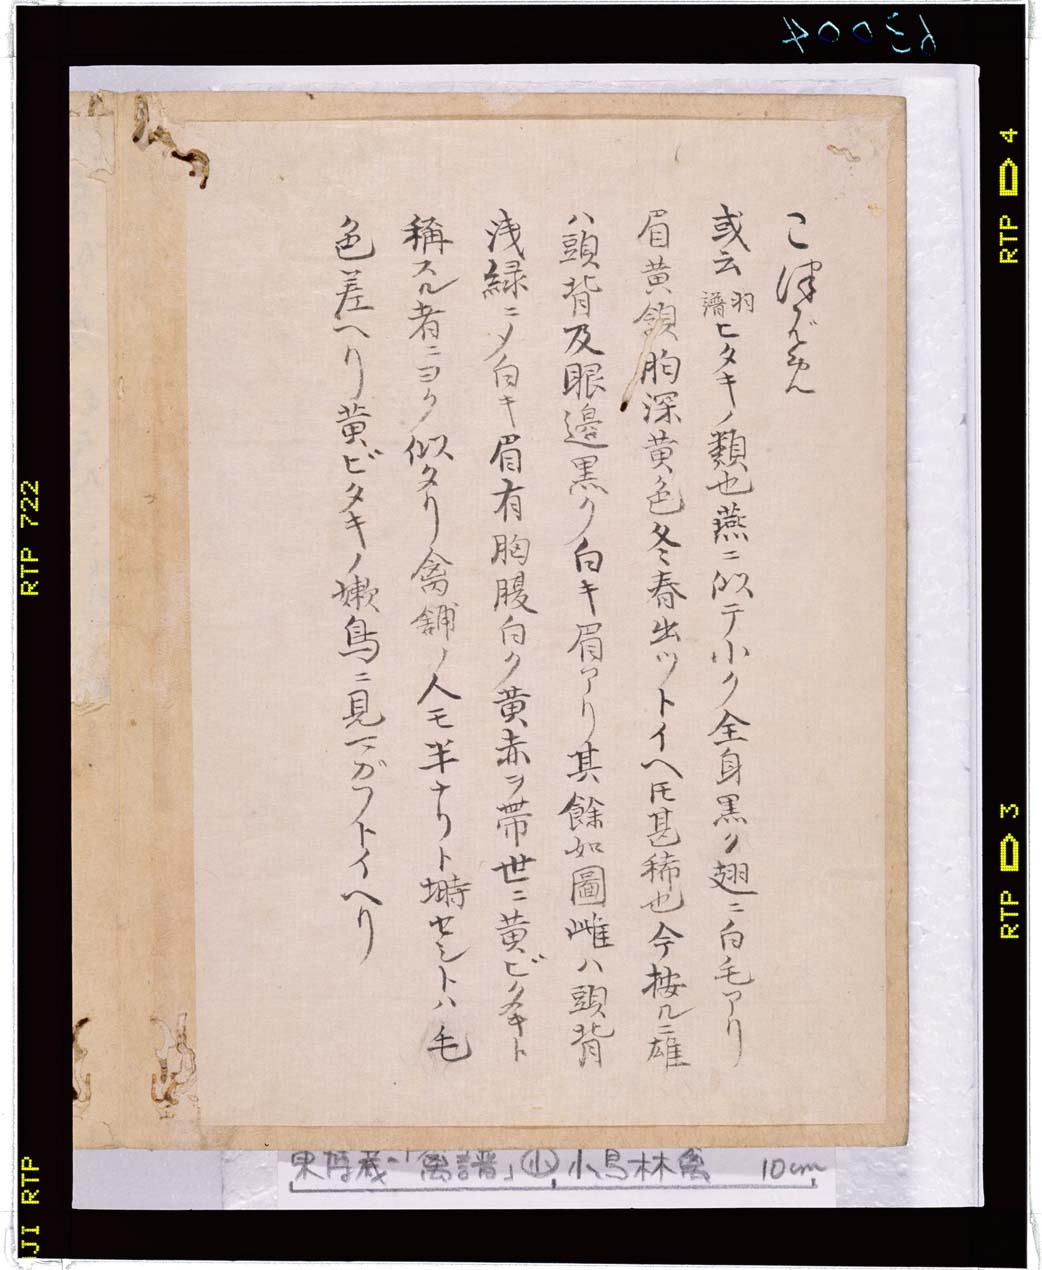 こ津バめん
或云羽譜ヒタキノ類也燕ニ似テ小ク全身黒ク翅ニ白毛アリ
眉黄頷胸深黄色冬春出ツトイヘ𪜈甚稀也今按ルニ雄
ハ頭背及眼邉黒ク白キ眉アリ其餘如圖雌ハ頭背
浅緑ニメ白キ眉有胸腹白ク黄赤ヲ帯世ニ黄ビタキト
稱スル者ニヨク似タリ禽舗ノ人モ半ナリト塒セシトハ毛
色差ヘリ黄ビタキノ嫩鳥ニ見マガフトイヘリ
東博蔵「禽譜」小 小鳥林禽 10cm
63004
RTP 4
RTP 3
RTP 722
JI RTP